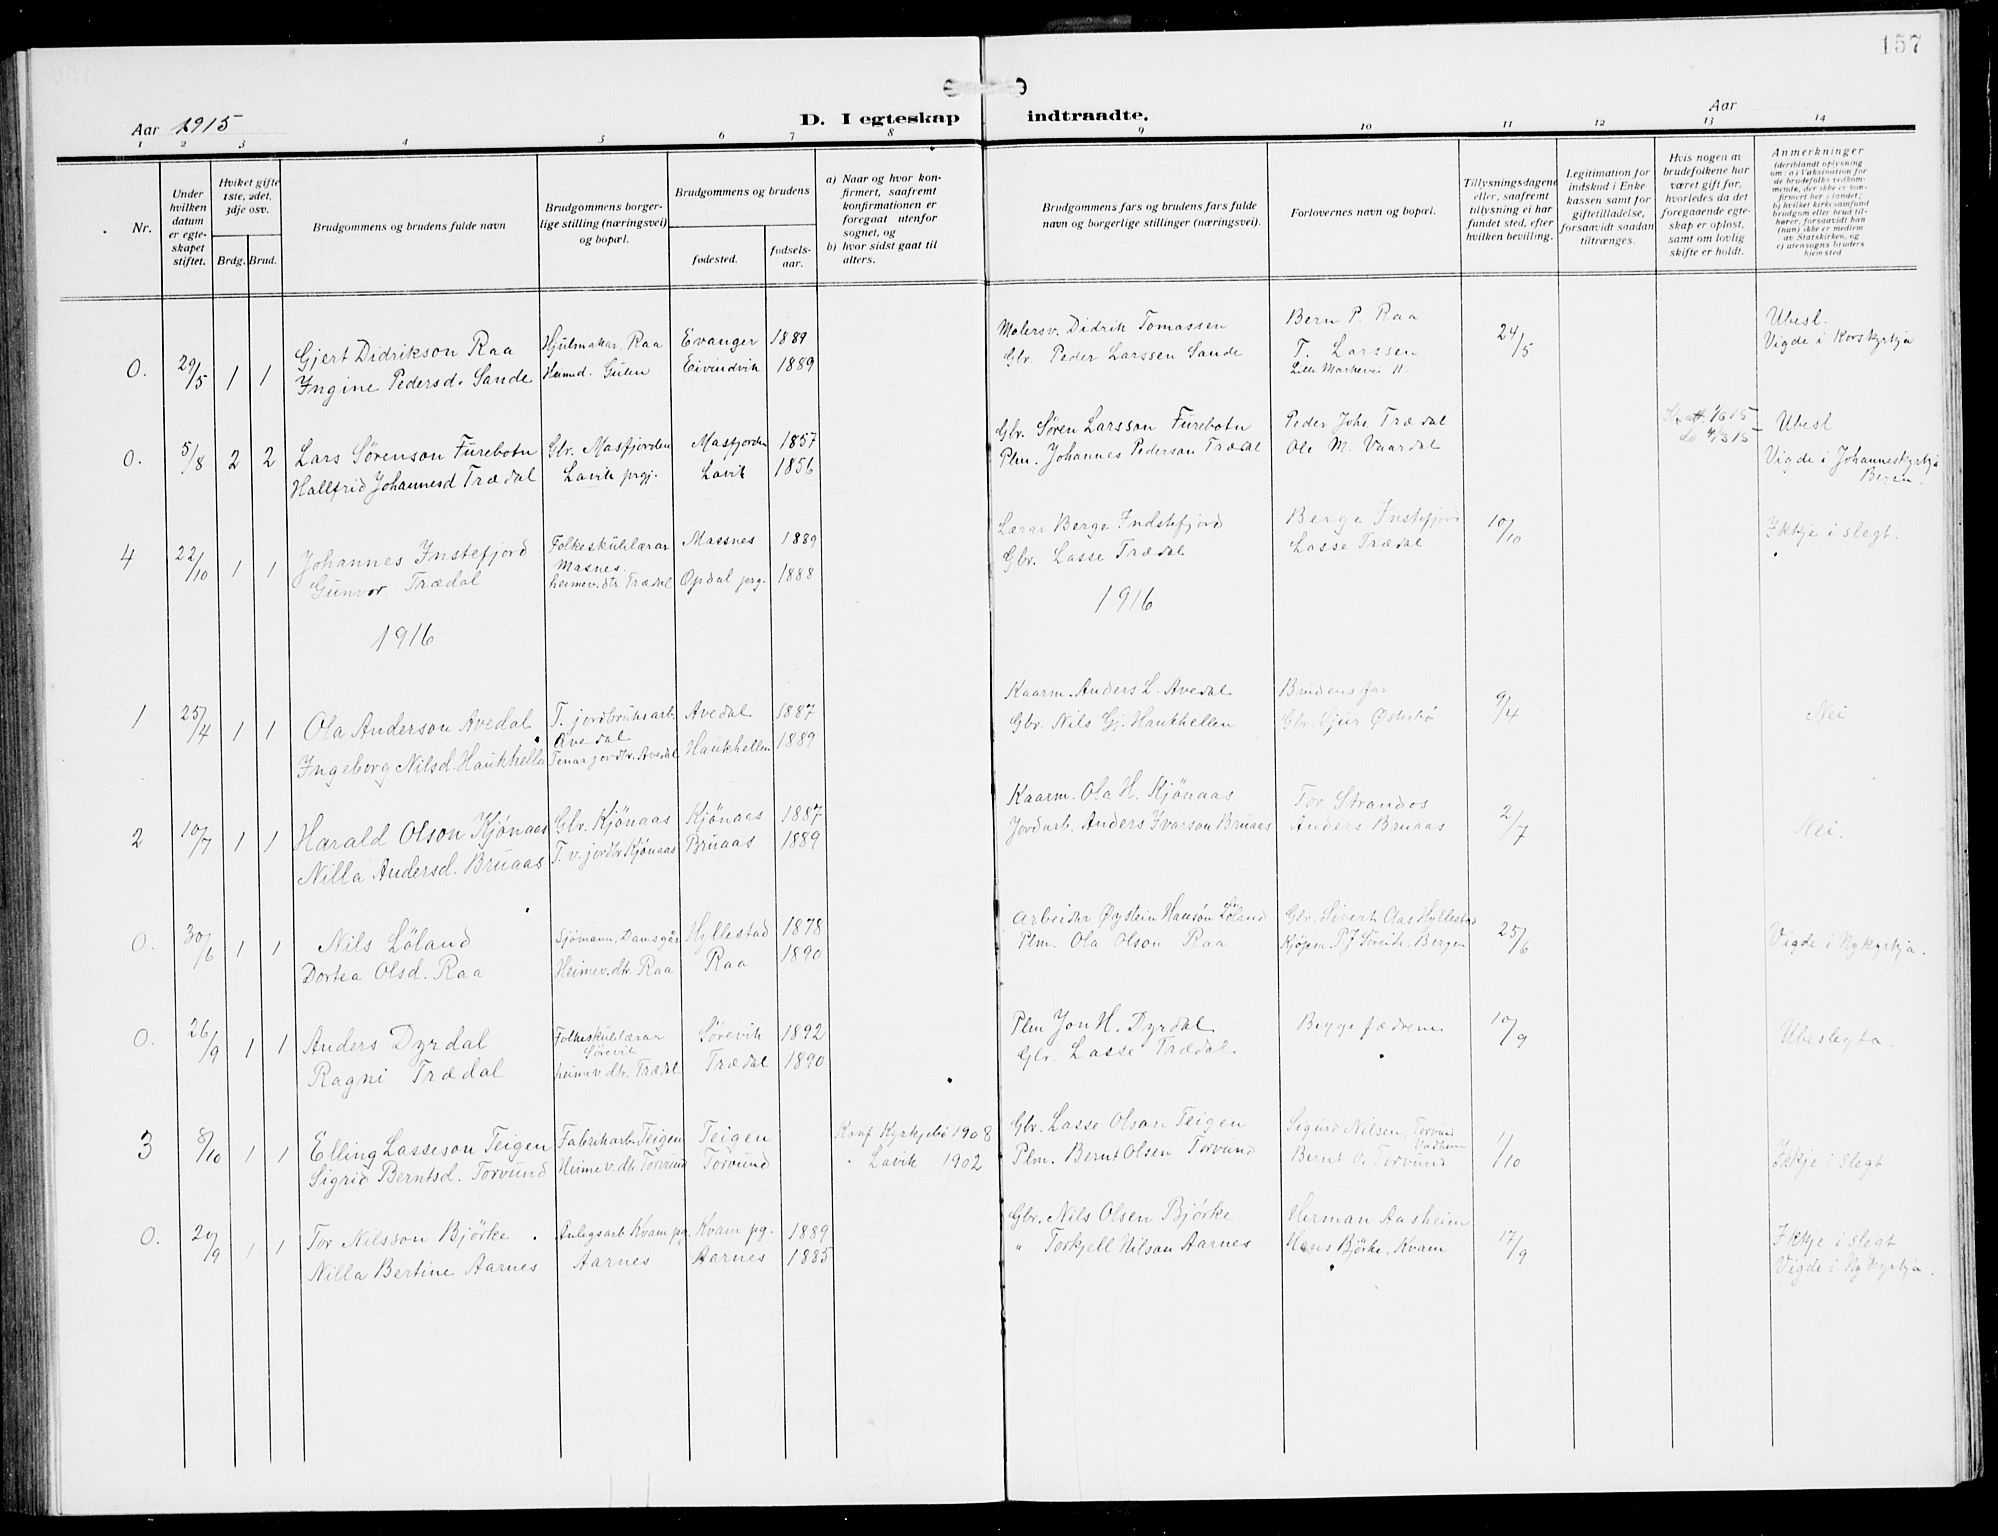 157
Aar 1915
D. I egteskap indtraadte.
Aar
1 2 3 4 5 6 7 8 9 10 11 12 13 14
Nr.
Under hvilken datum er egteskapet stiftet.
Hviket gifte 1ste, 2det, 3dje osv.
Brdg. Brud.
Brudgommens og brudens fulde navn
Brudgommens borgerlige stilling (næringsvei) og bopæl.
Brudgommens og brudens
fødested.
fødselsaar.
a) Naar og hvor konfirmert, saafremt konfirmationen er foregaat utenfor sognet, og
b) hvor sidst gaat til alters.
Brudgommens fars og brudens fars fulde navn og borgerlige stillinger (næringsvei).
Forlovernes navn og bopæl.
Tillysningsdagene eller, saafremt tillysning ei har fundet sted, efter hvilken bevilling.
Legitimation for indskud i Enkekassen samt for giftetilladelse, forsaavidt saadan tiltrænges.
Hvis nogen av brudefolkene har været gift før, hvorledes da det foregaaende egteskap er opløst, samt om lovlig skifte er holdt.
Anmerkninger (deriblandt oplysning om: a) Vaksination for de brudefolks vedkommende, der ikke er konfirmert her i landet, b) hvilket kirkesamfund brudgom eller brud tilhører, forsaavidt han (hun) ikke er medlem av Statskirken, og c) utensogns bruders hjemsted
0. 29/5 1 1 Gjert Didrikson Raa Hjulmakar. Raa Evanger 1889 Malersv. Didrik Tomassen Bern P. Raa 24/5 Ubesl.
Ingine Pedersd. Sande Heimd. Gulen Eivindvik 1889 Gbr. Peder Larssen Sande T. Larssen Vigde i Korskyrkja
Lille Markevei 11.
0. 5/8 2 2 Lars Sørenson Furebotn Gbr. Masfjorden Masfjorden 1857 Gbr. Søren Larsson Furebotn Peder Johs. Trædal Ubesl
Hallfrid Johannesd Trædal Lavik prgj. Lavik 1856 Plm. Johannes Pederson Trædal Ole M. Vaardal Vigde i Johanneskyrkja
4 22/10 1 1 Johannes Instefjord Folkeskulelærar Masnes. Maesnes 1889 Lærar Berge Indstefjord Berge Instefjord 10/10 Ikkje i slegt.
Gunvor Trædal heimev. dtr Trædal Opdal prg. 1888 Gbr. Lasse Trædal Lasse Trædal
1916 1916
1 25/4 1 1 Ola Anderson Avedal T. jordbruksarb. Avedal Avedal 1887 Kaarm. Anders L. Avedal Brudens far 9/4 Nei
Ingeborg Nilsd. Haukhella Tenar jordbr. Avedal Haukhellen 1889 Gbr. Nils Gj. Haukhellen Gbr. Gjur Østerbø
2 10/7 1 1 Harald Olson Kjønaas Gbr. Kjønaas Kjønaas 1887 Kaarm. Ola H. Kjønaas Tor Strandos 2/7 Nei.
Nilla Andersd. Bruaas T. v. jordbr Kjønaas Bruaas 1889 Jordarb. Anders Ivarson Bruaas Anders Bruaas
0. 30/6 1 1 Nils Løland Sjømann, Hyllestad 1878 Arbeider Øystein Hansøn Løland Gbr. Sivert Aas Hyllestad 25/6 Vigde i Nykyrkja.
Dortea Olsd. Raa Heimev. dtr. Raa Raa 1890 Plm. Ola Olson Raa Kjøpm. P J Søreide, Bergen
0. 26/9 1 1 Anders Dyrdal Folkeskulelærar Sørevik Sørevik 1892 Plm Jon H. Dyrdal Begge fædrene 10/9 Ubeslegta.
Ragni Trædal heimev. dtr. Trædal Trædal 1890 Gbr. Lasse Trædal
3 8/10 1 1 Elling Lasseson Teigen Fabrikarb. Teigen Teigen Konf Kyrkjebø 1908 Gbr. Lasse Olson Teigen Sigurd Nilsen, Torvund Vadheim 1/10 Ikkje i slegt
Sigrid Berntsd. Torvund Heimev. dtr Torvund Torvund Lavik 1902 Plm. Bernt Olsen Torvund Bernt O. Torvund
0. 20/9 1 1 Tor Nilsson Bjørke Anlegsarb Kvam pg. Kvam pg. 1889 Gbr. Nils Olsen Bjørke Herman Aasheim 17/9 Ikkje i slegt
Nilla Bertine Aarnes Aarnes Aarnes 1885 " Torkjell Nilson Aarnes Hans Bjørke, Kvam Vigde i Nykyrkja.